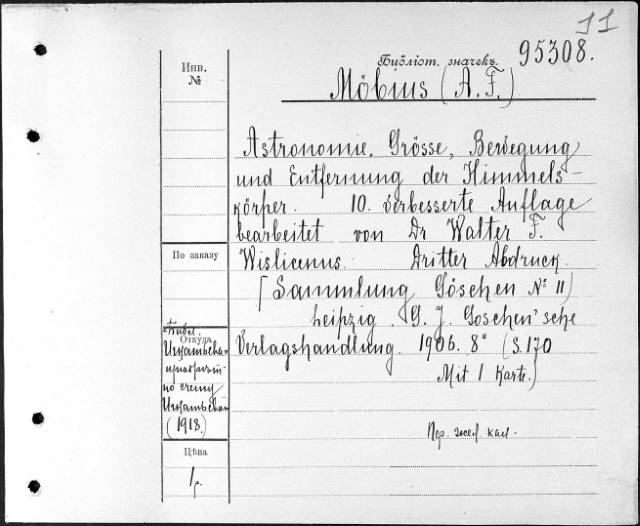 11
Библіот. значекъ. 95308.
Möbius (A. F.)
Инв.
№
Astronomie. Grösse, Bewegung
und Entfernung der Himmels-
körper. 10. verbesserte Auflage
bearbeitet von Dr Walter F.
По заказу
Wislicenus. Dritter Abdruck.
[Sammlung Göschen № 11)
Leipzig. G. J. Goschen'sche
Откуда
Verlagshandlung. 1906. 8° (S. 170
Mit 1 Karte.)
по счету
(1918.)
Цѣна
1 р.